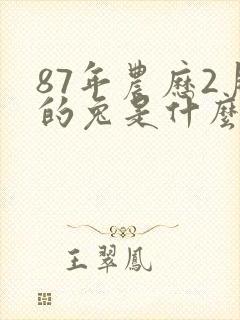 87年農历2月
的兔是什麽
王翠鳳